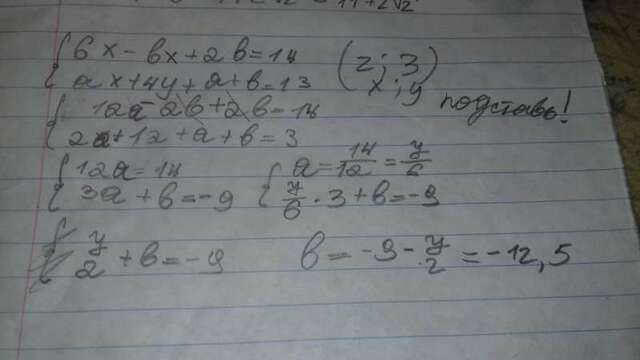 {6x-вx+2в=14
{ax+4y+a+в=13
(2; 3)
x; y
подставь!
{12a-2в+2в=14
{2a+12+a+в=3
{12a=14
{3a+в=-9
{a=14/12=7/6
{7/6·3+в=-9
7/2+в=-9
в=-9-7/2=-12,5